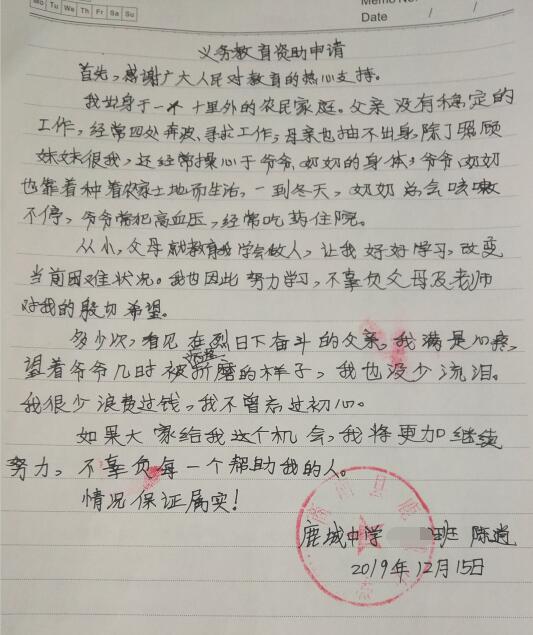 Mo Tu We Th Fr Sa Su
Memo No.
Date / /
义务教育资助申请
首先，感谢广大人民对教育的热心支持。
我出身于一个十里外的农民家庭。父亲没有稳定的
工作，经常四处奔波、寻求工作；母亲也抽不出身，除了照顾
妹妹很我，还经常操心于爷爷、奶奶的身体；爷爷、奶奶
也靠着种着农家土地而生活，一到冬天，奶奶总会咳嗽
不停，爷爷常犯高血压，经常吃药住院。
从小，父母就教育我学会做人，让我好好学习，改变
当前困难状况。我也因此努力学习，不辜负父母及老师
对我的殷切希望。
多少次，看见在烈日下奋斗的父亲，我满是心疼，
望着爷爷几时被折磨的样子，我也没少流泪。
我很少浪费过钱，我不曾忘过初心。
如果大家给我这个机会，我将更加继续
努力，不辜负每一个帮助我的人。
情况保证属实！
鹿城中学 班 陈逍
2019年12月15日